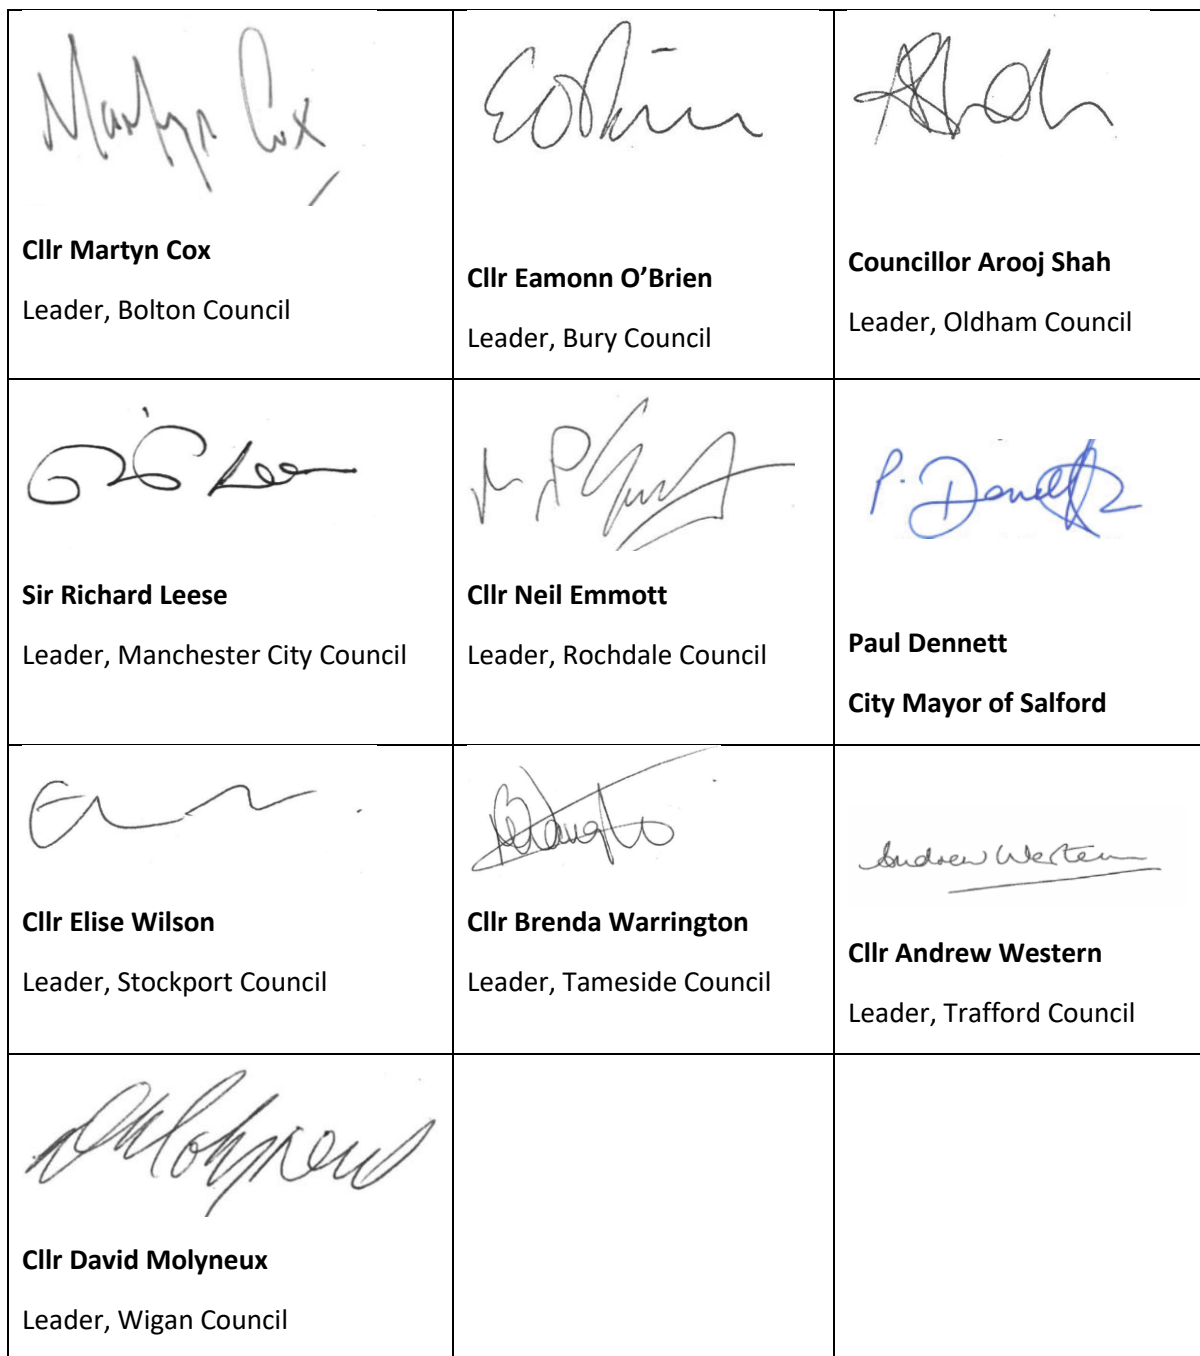 Martyn Cox
Cllr Martyn Cox
Leader, Bolton Council
Cllr Eamonn O’Brien
Leader, Bury Council
AShah
Councillor Arooj Shah
Leader, Oldham Council
Sir Richard Leese
Leader, Manchester City Council
Cllr Neil Emmott
Leader, Rochdale Council
P. Dennett
Paul Dennett
City Mayor of Salford
Cllr Elise Wilson
Leader, Stockport Council
Cllr Brenda Warrington
Leader, Tameside Council
Andrew Western
Cllr Andrew Western
Leader, Trafford Council
DMolyneux
Cllr David Molyneux
Leader, Wigan Council